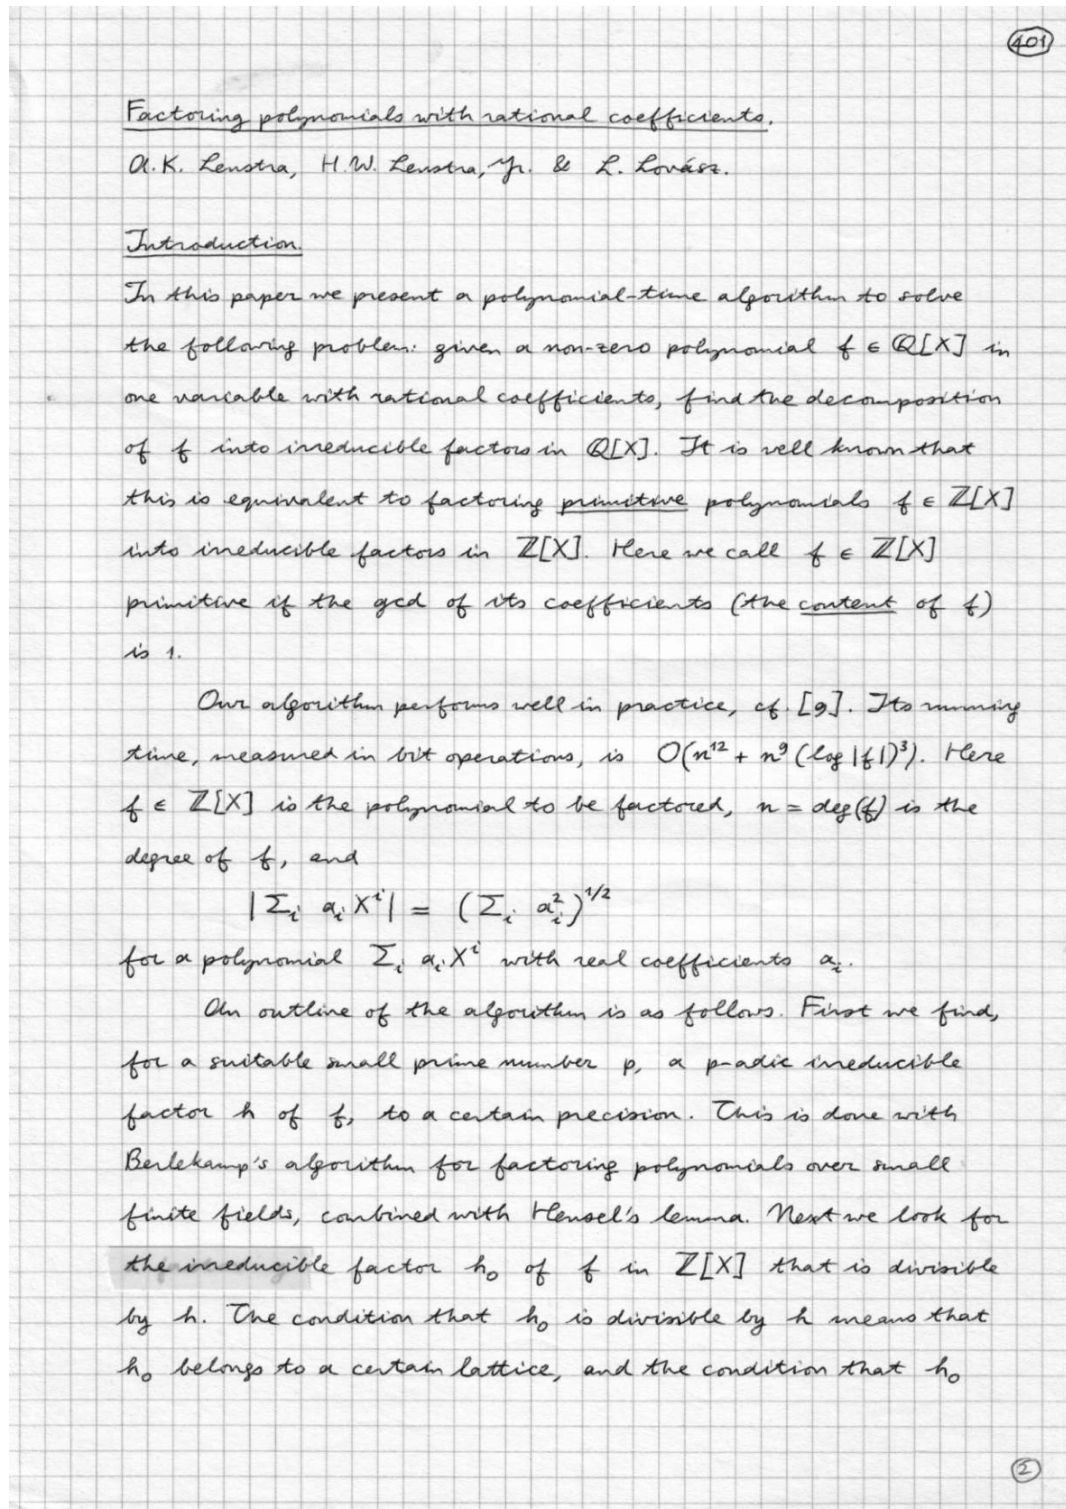 401
Factoring polynomials with rational coefficients.
A.K. Lenstra, H.W. Lenstra, Jr. & L. Lovász.
Introduction.
In this paper we present a polynomial-time algorithm to solve
the following problem: given a non-zero polynomial f ∈ ℚ[X] in
one variable with rational coefficients, find the decomposition
of f into irreducible factors in ℚ[X]. It is well known that
this is equivalent to factoring primitive polynomials f ∈ ℤ[X]
into irreducible factors in ℤ[X]. Here we call f ∈ ℤ[X]
primitive if the gcd of its coefficients (the content of f)
is 1.
Our algorithm performs well in practice, cf. [9]. Its running
time, measured in bit operations, is O(n¹² + n⁹ (log |f|)³). Here
f ∈ ℤ[X] is the polynomial to be factored, n = deg(f) is the
degree of f, and
|Σᵢ aᵢ Xⁱ| = (Σᵢ aᵢ²)^1/2
for a polynomial Σᵢ aᵢXⁱ with real coefficients aᵢ.
An outline of the algorithm is as follows. First we find,
for a suitable small prime number p, a p-adic irreducible
factor h of f, to a certain precision. This is done with
Berlekamp's algorithm for factoring polynomials over small
finite fields, combined with Hensel's lemma. Next we look for
the irreducible factor h₀ of f in ℤ[X] that is divisible
by h. The condition that h₀ is divisible by h means that
h₀ belongs to a certain lattice, and the condition that h₀
2